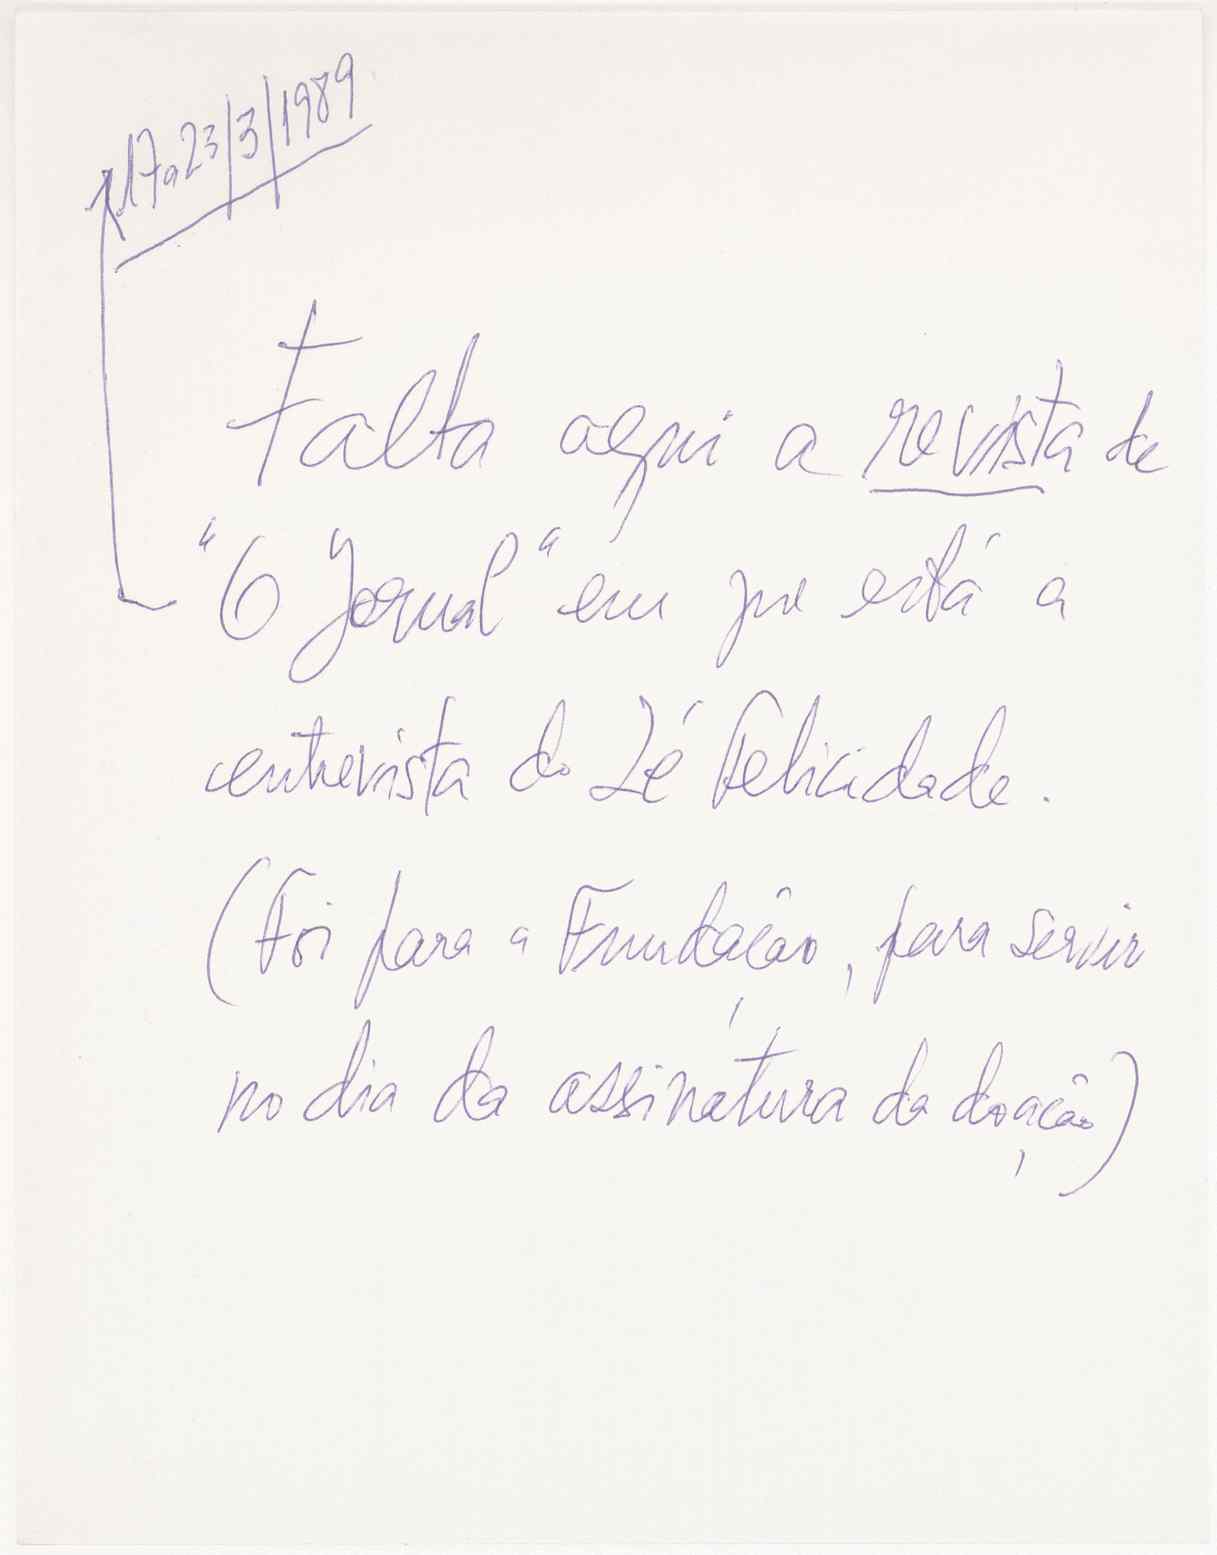 17 a 23/3/1989
Falta aqui a revista de
"O Jornal" em que está a
entrevista do Zé Felicidade.
(Foi para a Fundação, para servir
no dia da assinatura da doação)